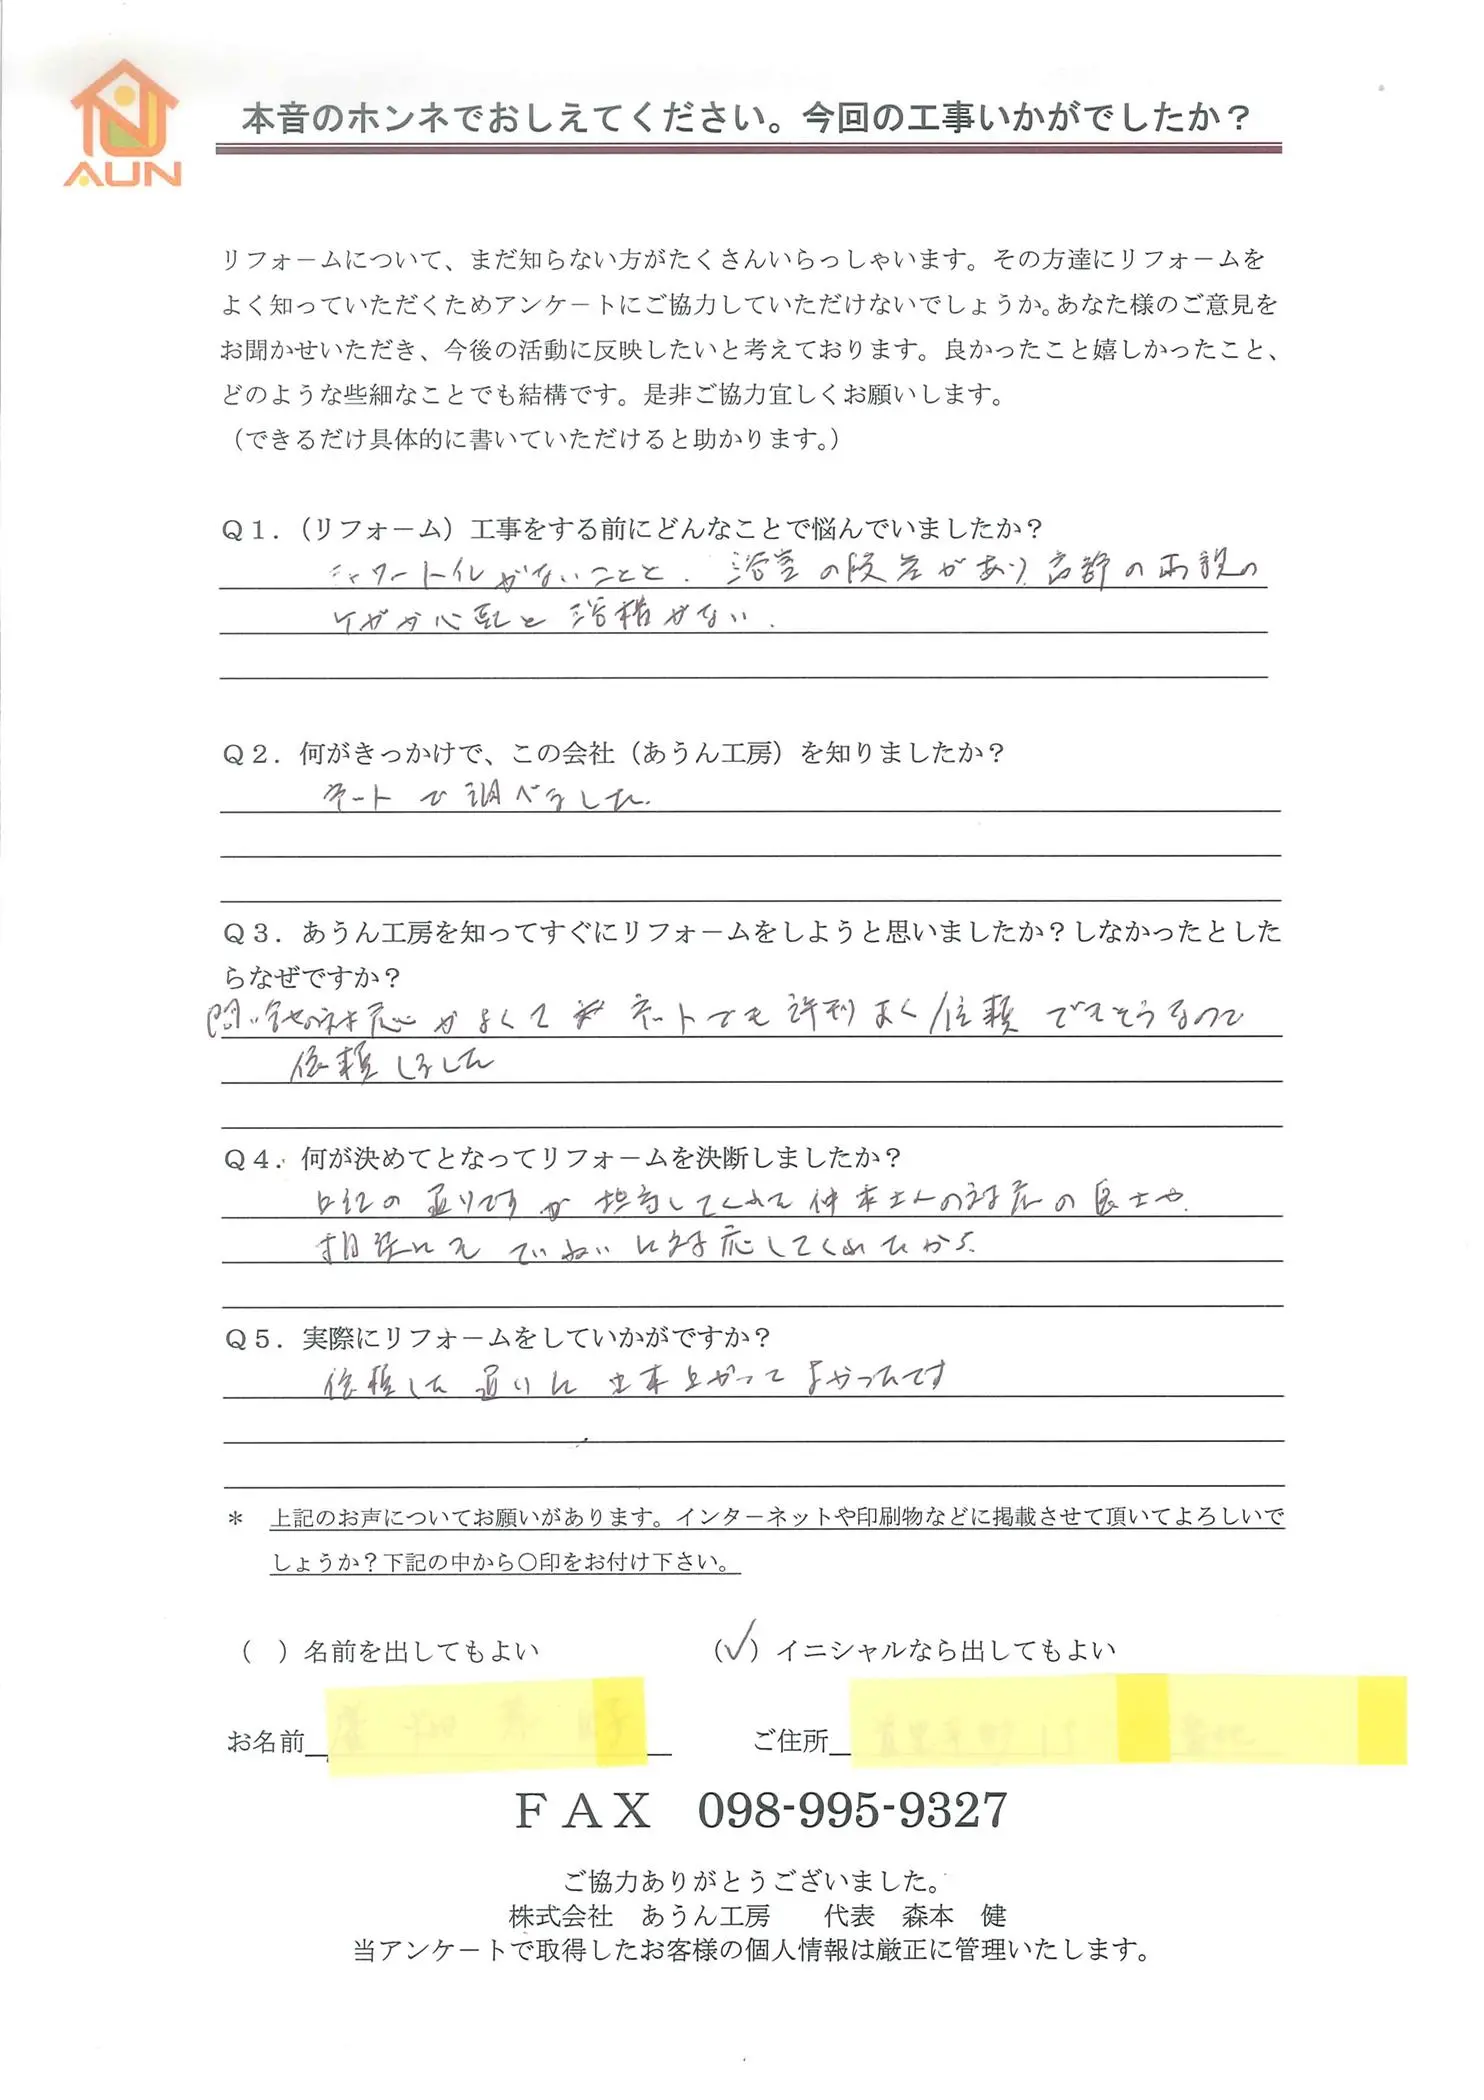 AUN
本音のホンネでおしえてください。今回の工事いかがでしたか？
リフォームについて、まだ知らない方がたくさんいらっしゃいます。その方達にリフォームを
よく知っていただくためアンケートにご協力していただけないでしょうか。あなた様のご意見を
お聞かせいただき、今後の活動に反映したいと考えております。良かったこと嬉しかったこと、
どのような些細なことでも結構です。是非ご協力宜しくお願いします。
（できるだけ具体的に書いていただけると助かります。）
Ｑ１．（リフォーム）工事をする前にどんなことで悩んでいましたか？
シャワートイレがないことと、浴室の段差があり高齢の両親の
ケガが心配と浴槽がない。
Ｑ２．何がきっかけで、この会社（あうん工房）を知りましたか？
ネットで調べました。
Ｑ３．あうん工房を知ってすぐにリフォームをしようと思いましたか？しなかったとした
らなぜですか？
問い合せの対応がよくて ネットでも評判よく信頼できそうなので
依頼しました
Ｑ４．何が決めてとなってリフォームを決断しましたか？
上記の通りですが担当してくれた仲本さんの対応の良さや
相談にもていねいに対応してくれたから。
Ｑ５．実際にリフォームをしていかがですか？
依頼した通りに出来上がってよかったです
＊ 上記のお声についてお願いがあります。インターネットや印刷物などに掲載させて頂いてよろしいで
しょうか？下記の中から〇印をお付け下さい。
（ ）名前を出してもよい （✓）イニシャルなら出してもよい
お名前 ご住所
ＦＡＸ 098-995-9327
ご協力ありがとうございました。
株式会社 あうん工房 代表 森本 健
当アンケートで取得したお客様の個人情報は厳正に管理いたします。